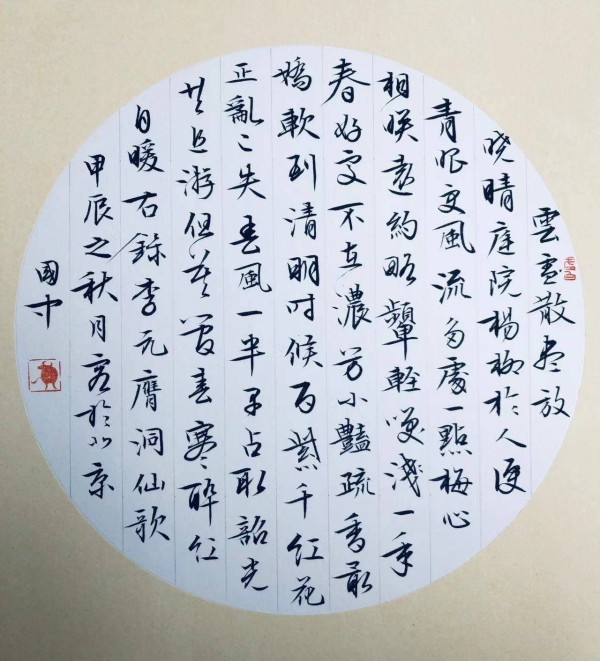 雲雪散盡放
晓晴庭院楊柳於人便
青眼更風流多處一點梅心
相映遠約略顰輕笑淺一年
春好處不在濃芳小豔疏香最
嬌軟到清明时候百紫千紅花
正亂已失春風一半早占取韶光
共追游但莫管春寒醉紅
自暖右錄李元膺洞仙歌
甲辰之秋月客於北京
國